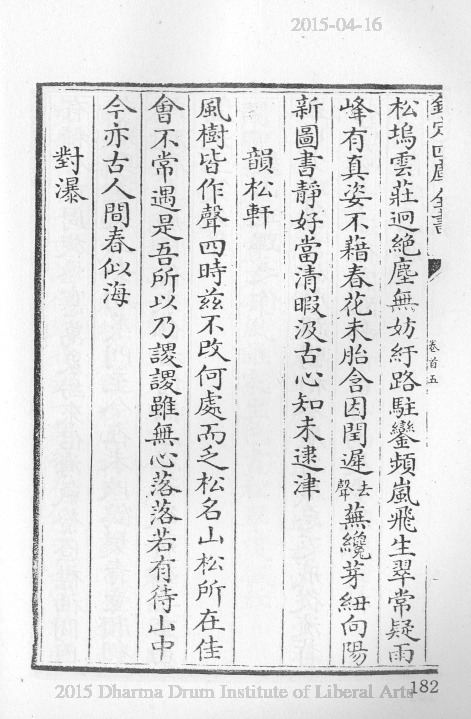 2015-04-16
欽定四庫全書
卷首五
松塢雲莊迥絶塵無妨紆路駐鑾頻嵐飛生翠常疑雨
峰有真姿不藉春花未胎含因閏遲去聲蕪纔芽紐向陽
新圖書靜好當清暇汲古心知未逮津
韻松軒
風樹皆作聲四時兹不改何處而乏松名山松所在佳
會不常遇是吾所以乃謖謖雖無心落落若有待山中
今亦古人間春似海
對瀑
182
2015 Dharma Drum Institute of Liberal Arts